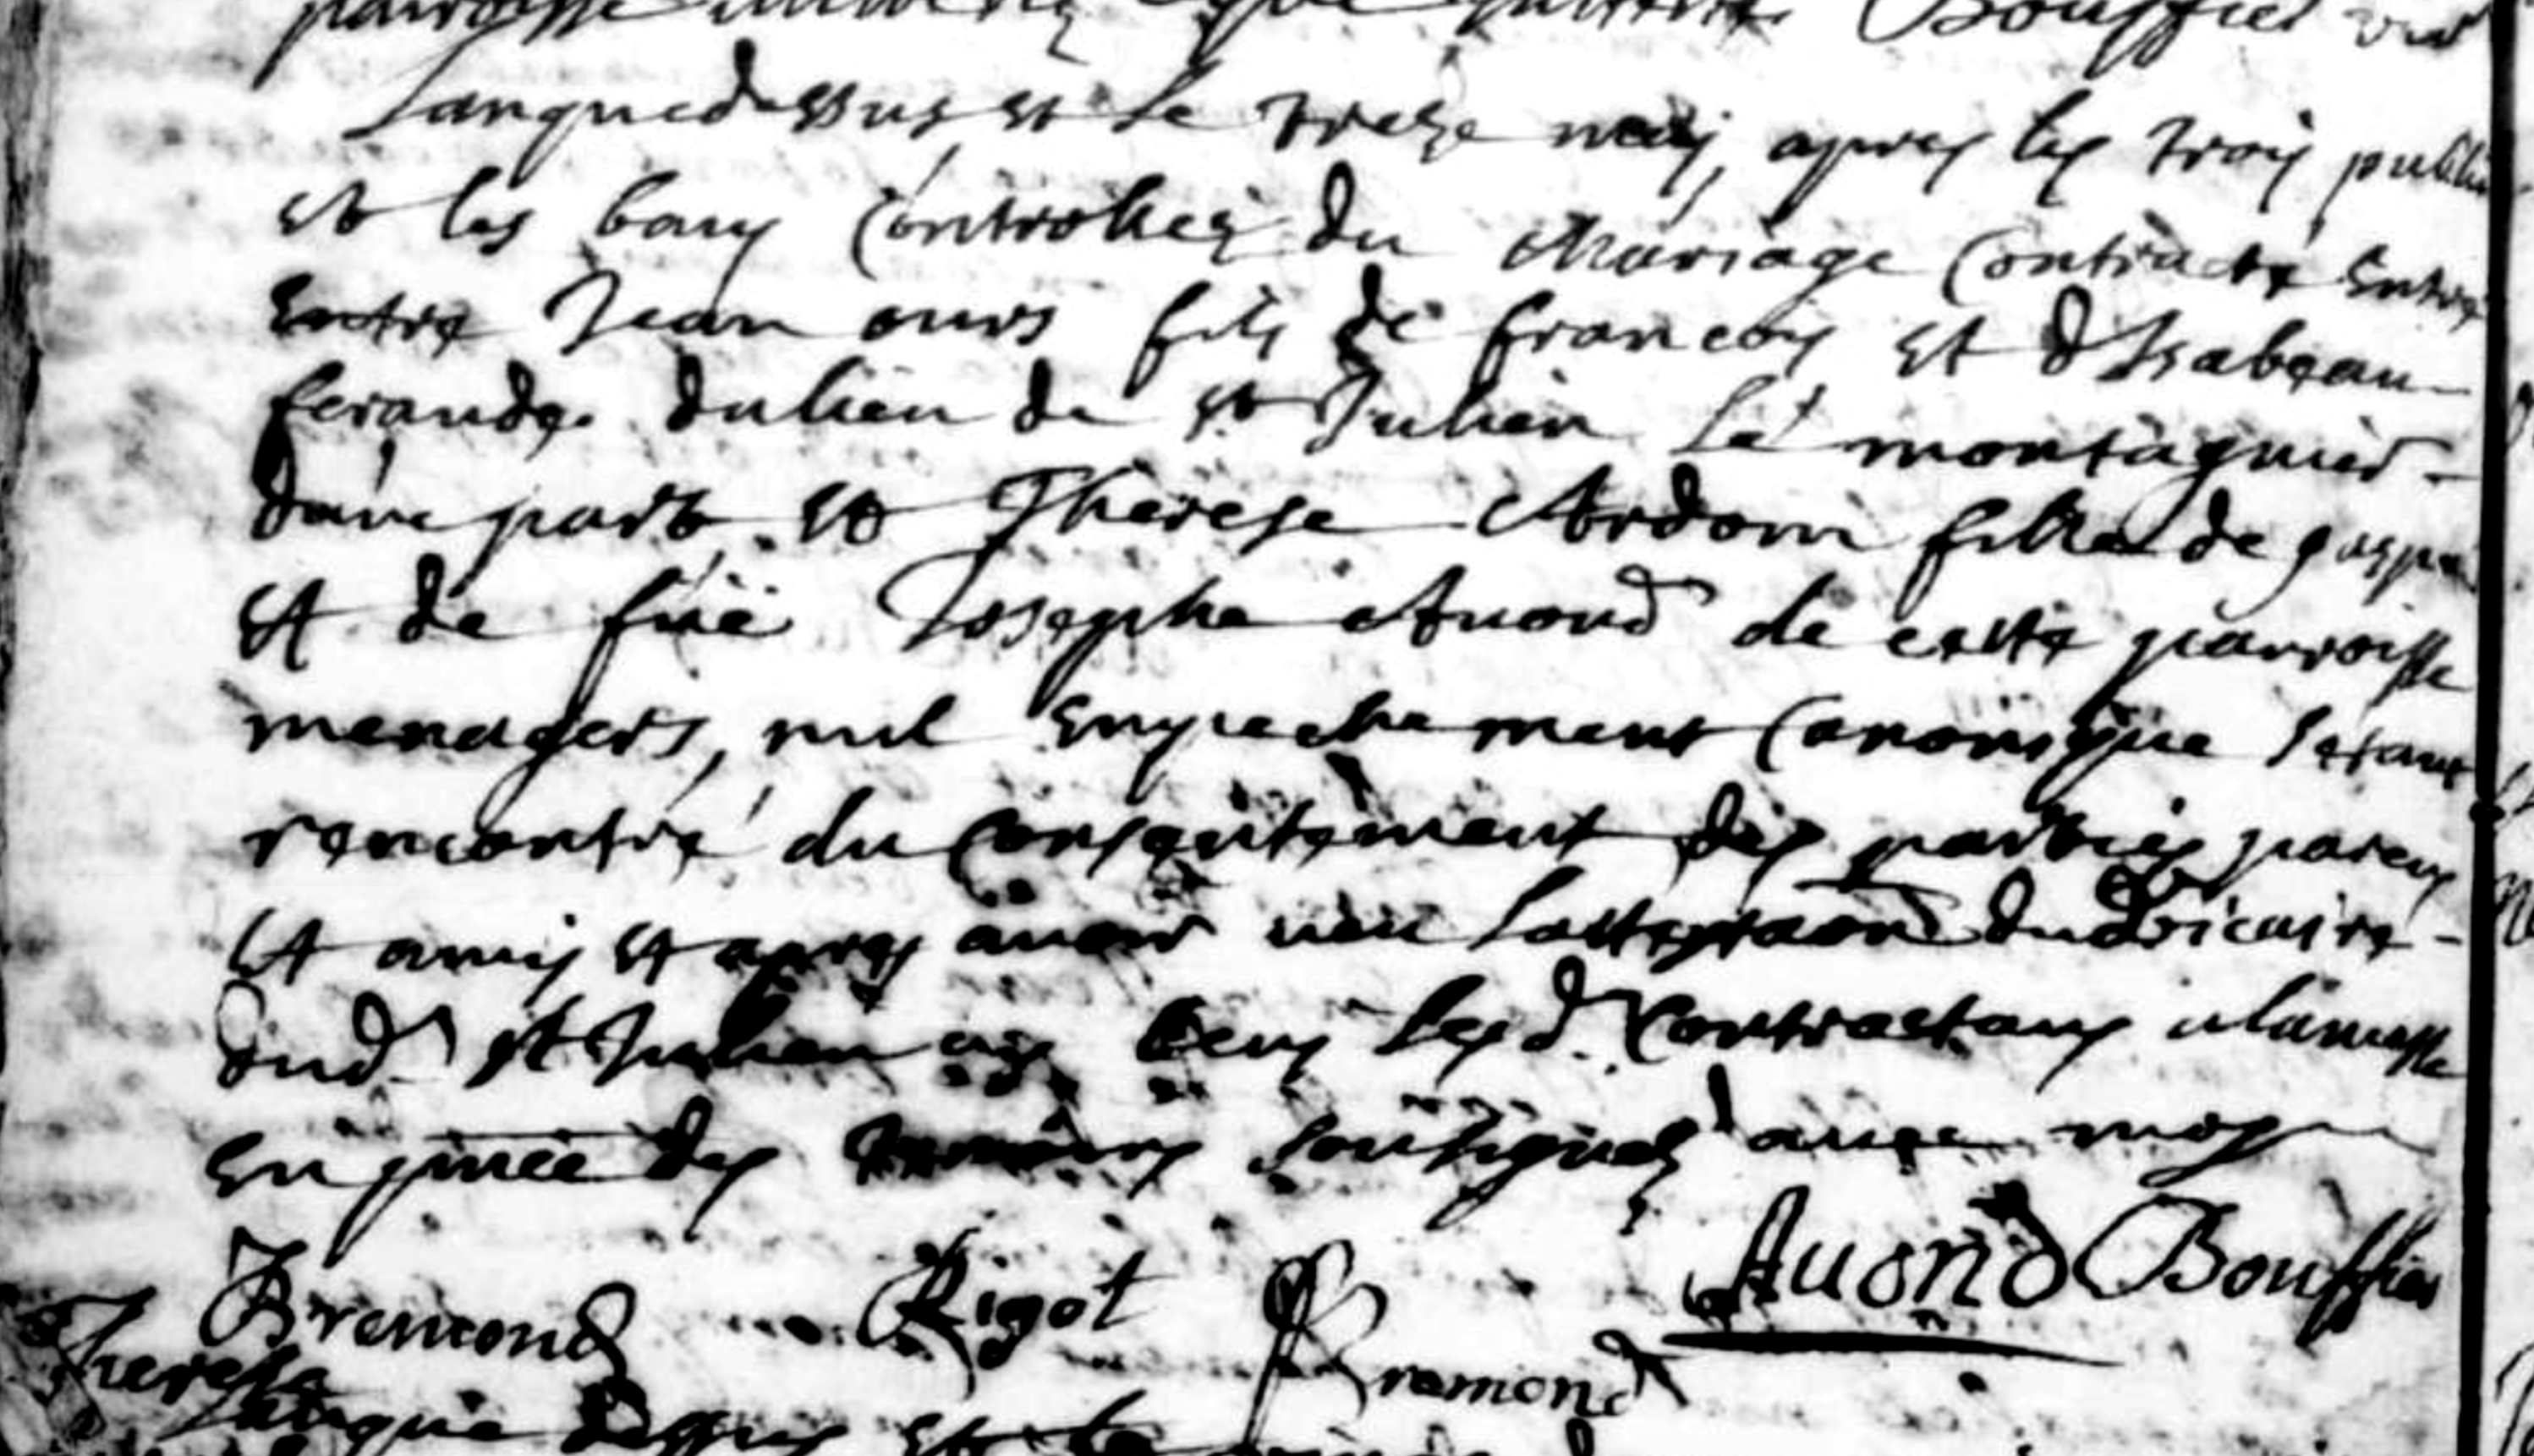 paroisse Bouffier vic
Lanque dessus et le treze may, apres les trois publi
et les bans Controllez du Mariage Contracte Entre
Entre Jean ours fils de francois et d Isabeau
ferande du lieu de st Julien le montagnier
dune part et Therese Ardoin fille de gaspa
et de fue Josephe Auond de cette parroisse
menagers, nul Empechement Canonique setant
rencontré du Consentement des parties parens
et amis et apres auoir veu lattestaon dud vicaire
dud st Julien ay beny lesd. Contractans a la messe
En pnce des temoins soussignez auec moy
Auond Bouffier
Bremond Rigot Bremond
Therese
Lanque dessus et le